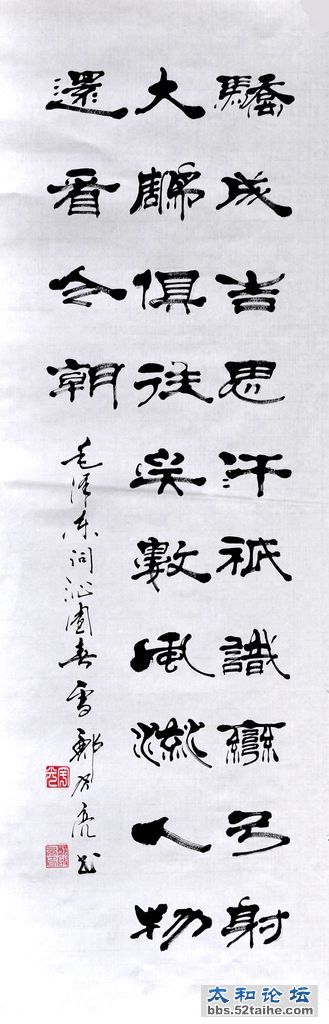 驕成吉思汗祇識彎弓射
大鵰俱往矣數風流人物
還看今朝
毛泽东词沁园春雪 鄭亮书
太和论坛
bbs.52taihe.com